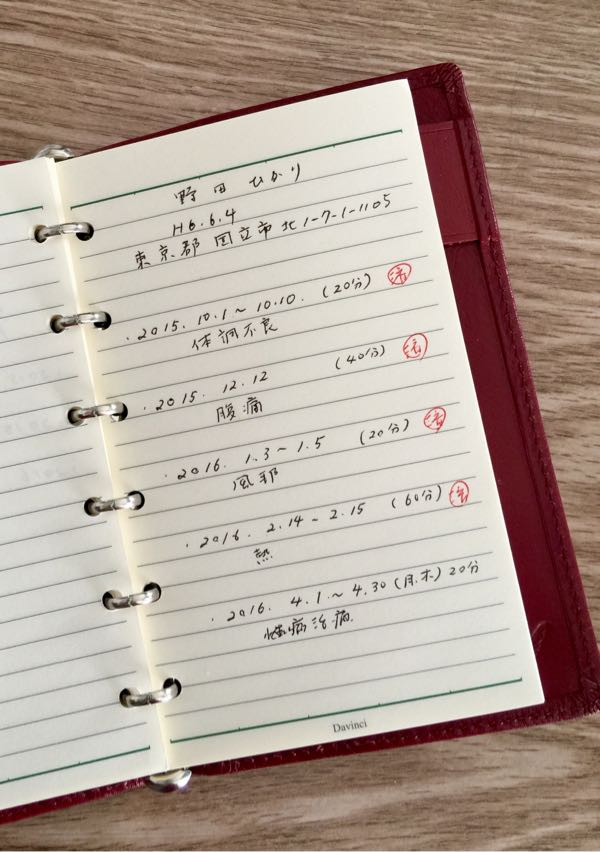 野田 ひかり
H6.6.4
東京都 国立市 北1-7-1-1105
・2015. 10.1～10.10. (20分) 済
体調不良
・2015. 12.12 (40分) 済
腹痛
・2016. 1.3～1.5 (20分) 済
風邪
・2016. 2.14～2.15 (60分) 済
熱
・2016. 4.1～4.30 (月.木) 20分
病治
Davinci